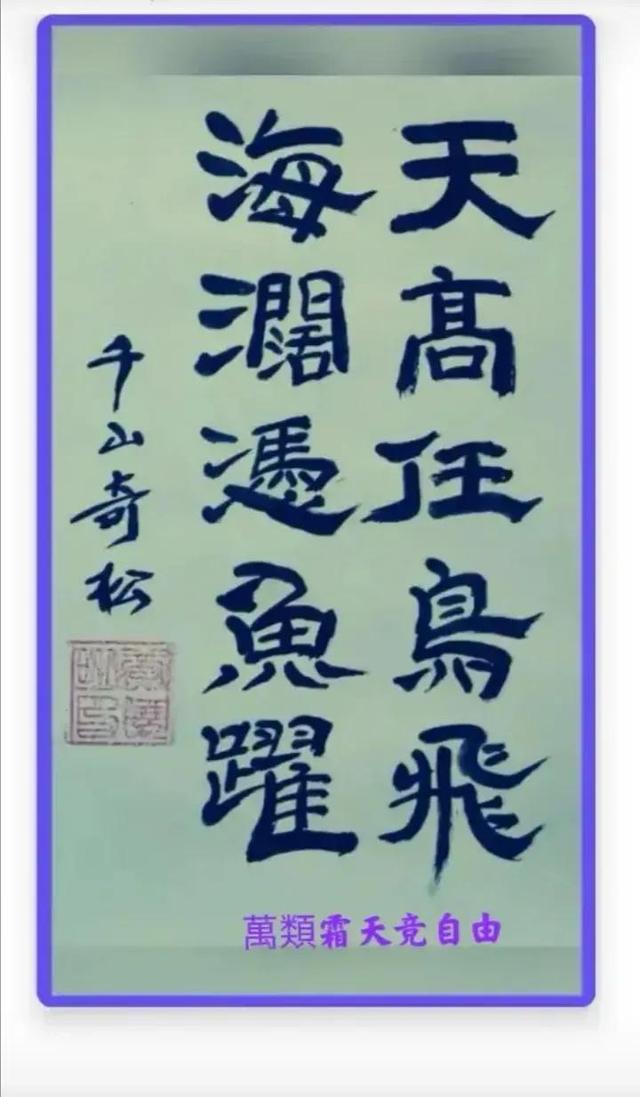 天高任鳥飛
海濶憑魚躍
千山奇松
萬類霜天竞自由